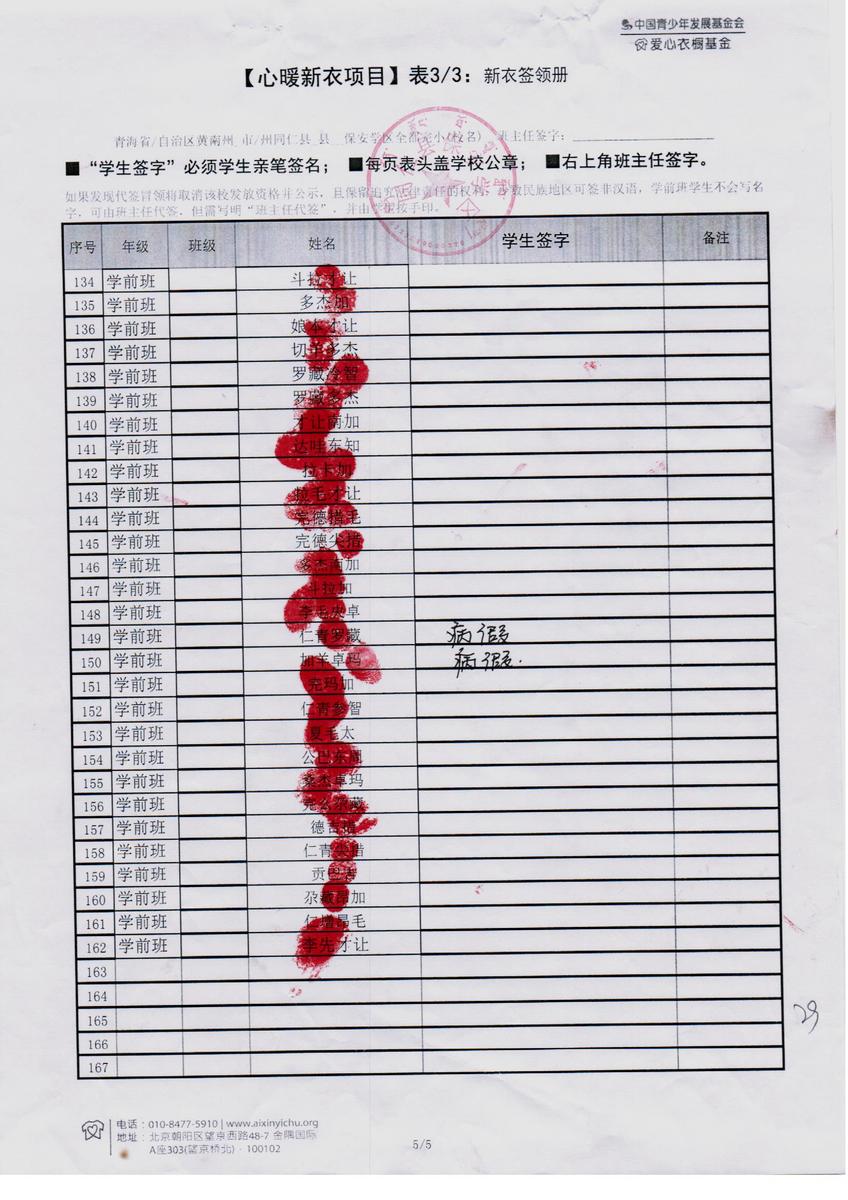 中国青少年发展基金会
爱心衣橱基金
【心暖新衣项目】表3/3：新衣签领册
青海省/自治区黄南州_市/州同仁县_县__保安学区全都完小(校名) 班主任签字：
■ “学生签字”必须学生亲笔签名； ■每页表头盖学校公章； ■右上角班主任签字。
如果发现代签冒领将取消该校发放资格并公示，且保留追究法律责任的权利。少数民族地区可签非汉语，学前班学生不会写名
字，可由班主任代签，但需写明“班主任代签”，并由学生按手印。
序号 年级 班级 姓名 学生签字 备注
134 学前班 斗拉才让
135 学前班 多杰加
136 学前班 娘本才让
137 学前班 切羊多杰
138 学前班 罗藏冷智
139 学前班 罗藏多杰
140 学前班 才让南加
141 学前班 达哇东知
142 学前班 拉卡加
143 学前班 拉毛才让
144 学前班 完德措毛
145 学前班 完德尖措
146 学前班 多杰南加
147 学前班 斗拉加
148 学前班 李毛央卓
149 学前班 仁青罗藏 病假
150 学前班 加羊卓玛 病假.
151 学前班 完玛加
152 学前班 仁青参智
153 学前班 夏毛太
154 学前班 公巴东周
155 学前班 桑杰卓玛
156 学前班
157 学前班 德吉措
158 学前班 仁青尖措
159 学前班
160 学前班 尕藏昂加
161 学前班 仁增昂毛
162 学前班 李先才让
163
164
165
166
167
29
电话：010-8477-5910 | www.aixinyichu.org
地址：北京朝阳区望京西路48-7 金隅国际
A座303(望京桥北) · 100102
5/5